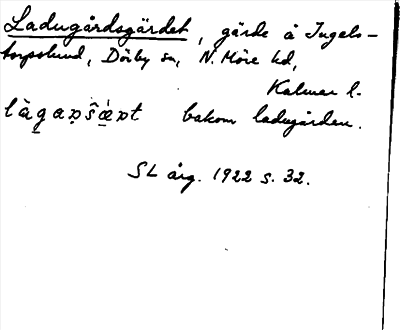 Ladugårdsgärdet, gärde å Ingels-
torpslund, Dörby sn, N. Möre hd,
Kalmar l.
bakom ladugården.
SL årg. 1922 s. 32.